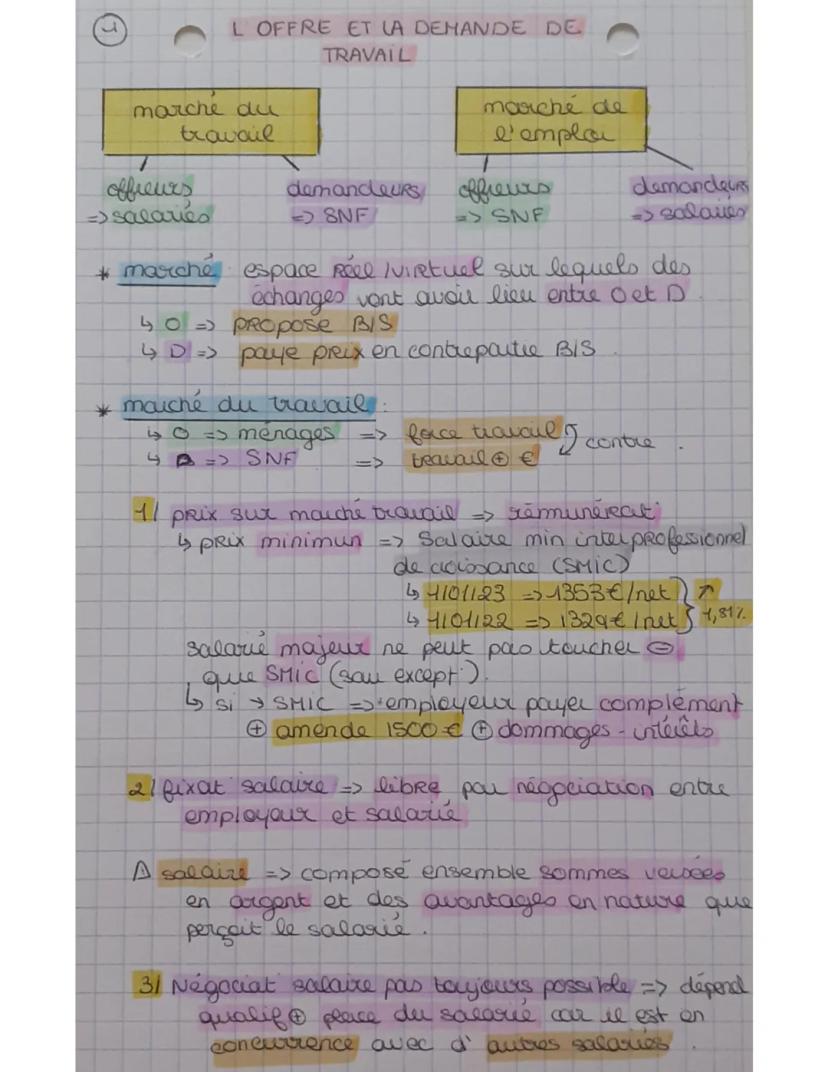 1
L'OFFRE ET LA DEMANDE DE
TRAVAIL
marché du
travail
marché de
l'emploi
offreurs
=> salariés
demandeurs
=> SNF
offreurs
=> SNF
demandeurs
=> salariés
* marché espace Réel / virtuel sur lequels des
échanges vont avoir lieu entre O et D
↳ O => propose B/S
↳ D => paye prix en contrepartie B/S.
* marché du travail :
↳ O => ménages => force travail
↳ D => SNF => travail ⊕ €
contre.
1/ prix sur marché travail => rémunérat°
↳ prix minimun => Salaire min interprofessionnel
de croissance (SMIC)
↳ 1/01/23 => 1353€/net
↳ 1/01/22 => 1329€/net
↗
1,81%
salarié majeur ne peut pas toucher ⊖
que SMIC (sau except°).
↳ si → SMIC => employeur payer complément
⊕ amende 1500€ ⊕ dommages-intérêts
2/ fixat° salaire => libre par négociation entre
employeur et salarié
⚠ salaire => composé ensemble sommes versées
en argent et des avantages en nature que
perçoit le salarié.
3/ Négociat° salaire pas toujours possible => dépend
qualif ⊕ place du salarié car il est en
concurrence avec d'autres salariés.